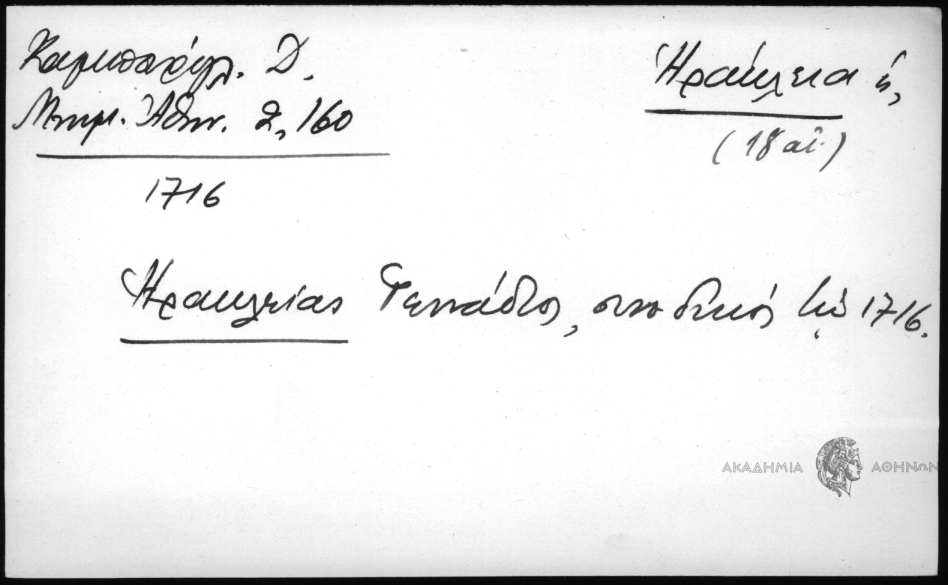 Καμπούρογλ. Δ.
Μνημ. Ἀθην. 2, 160
1716
Ἡράκλεια ἡ,
(18 αἰ.)
Ἡρακλείας Γεννάδιος, συνοδικός τῷ 1716.
ΑΚΑΔΗΜΙΑ ΑΘΗΝΩΝ